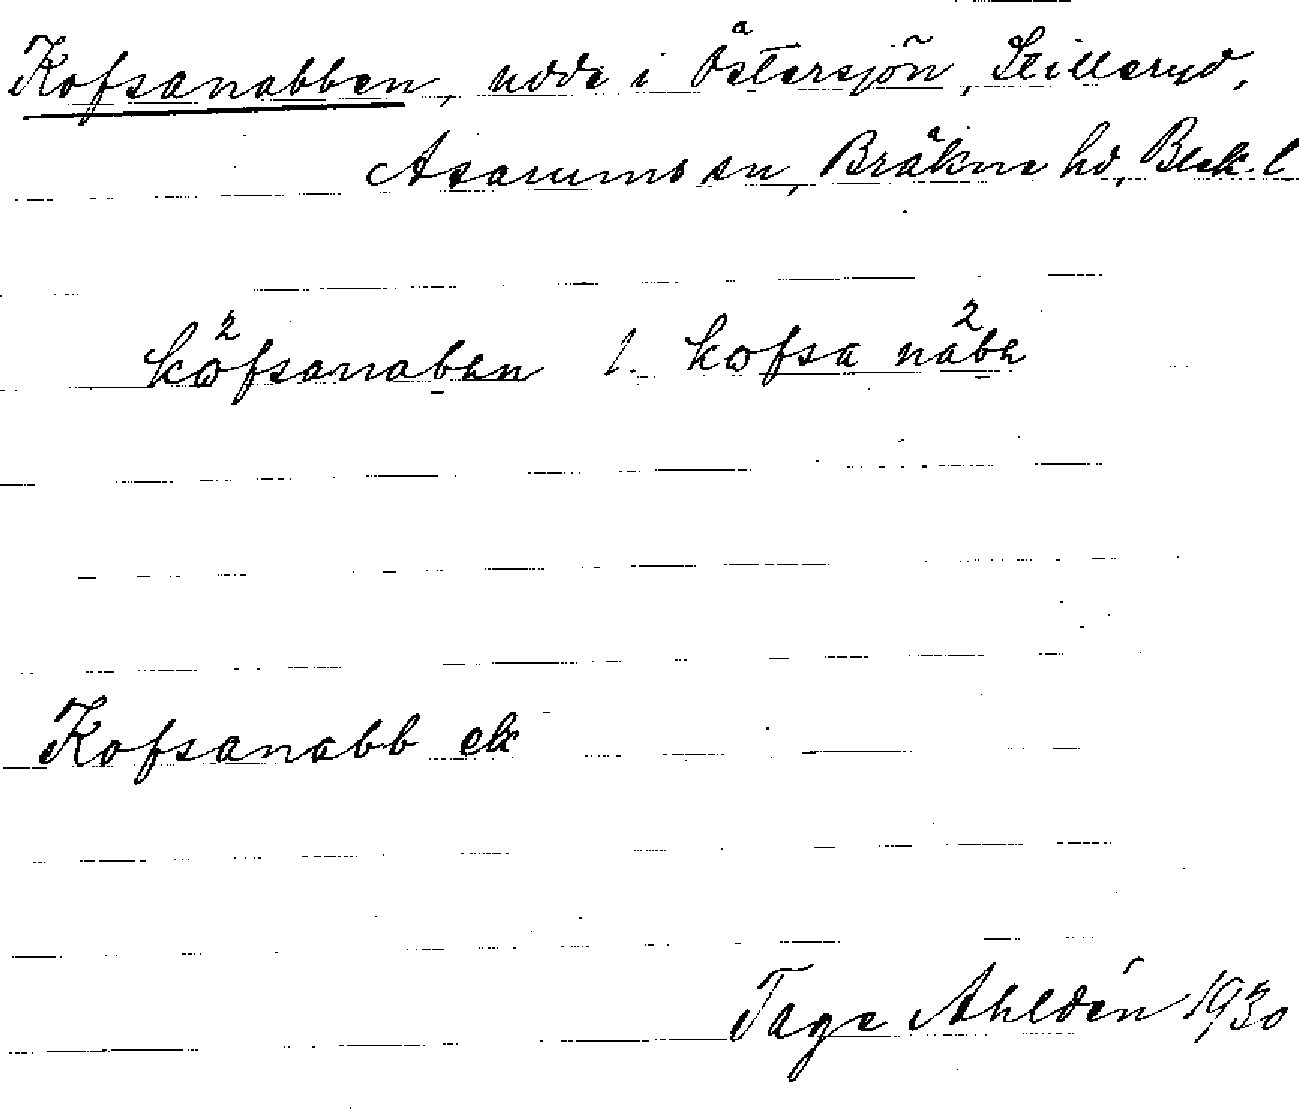 Kofsanabben, udde i Östersjön, Stilleryd,
Asarums sn, Bräkne hd, Blek. l
kofsanaben l. kofsa nabe
Kofsanabb ek
Tage Ahldén 1930